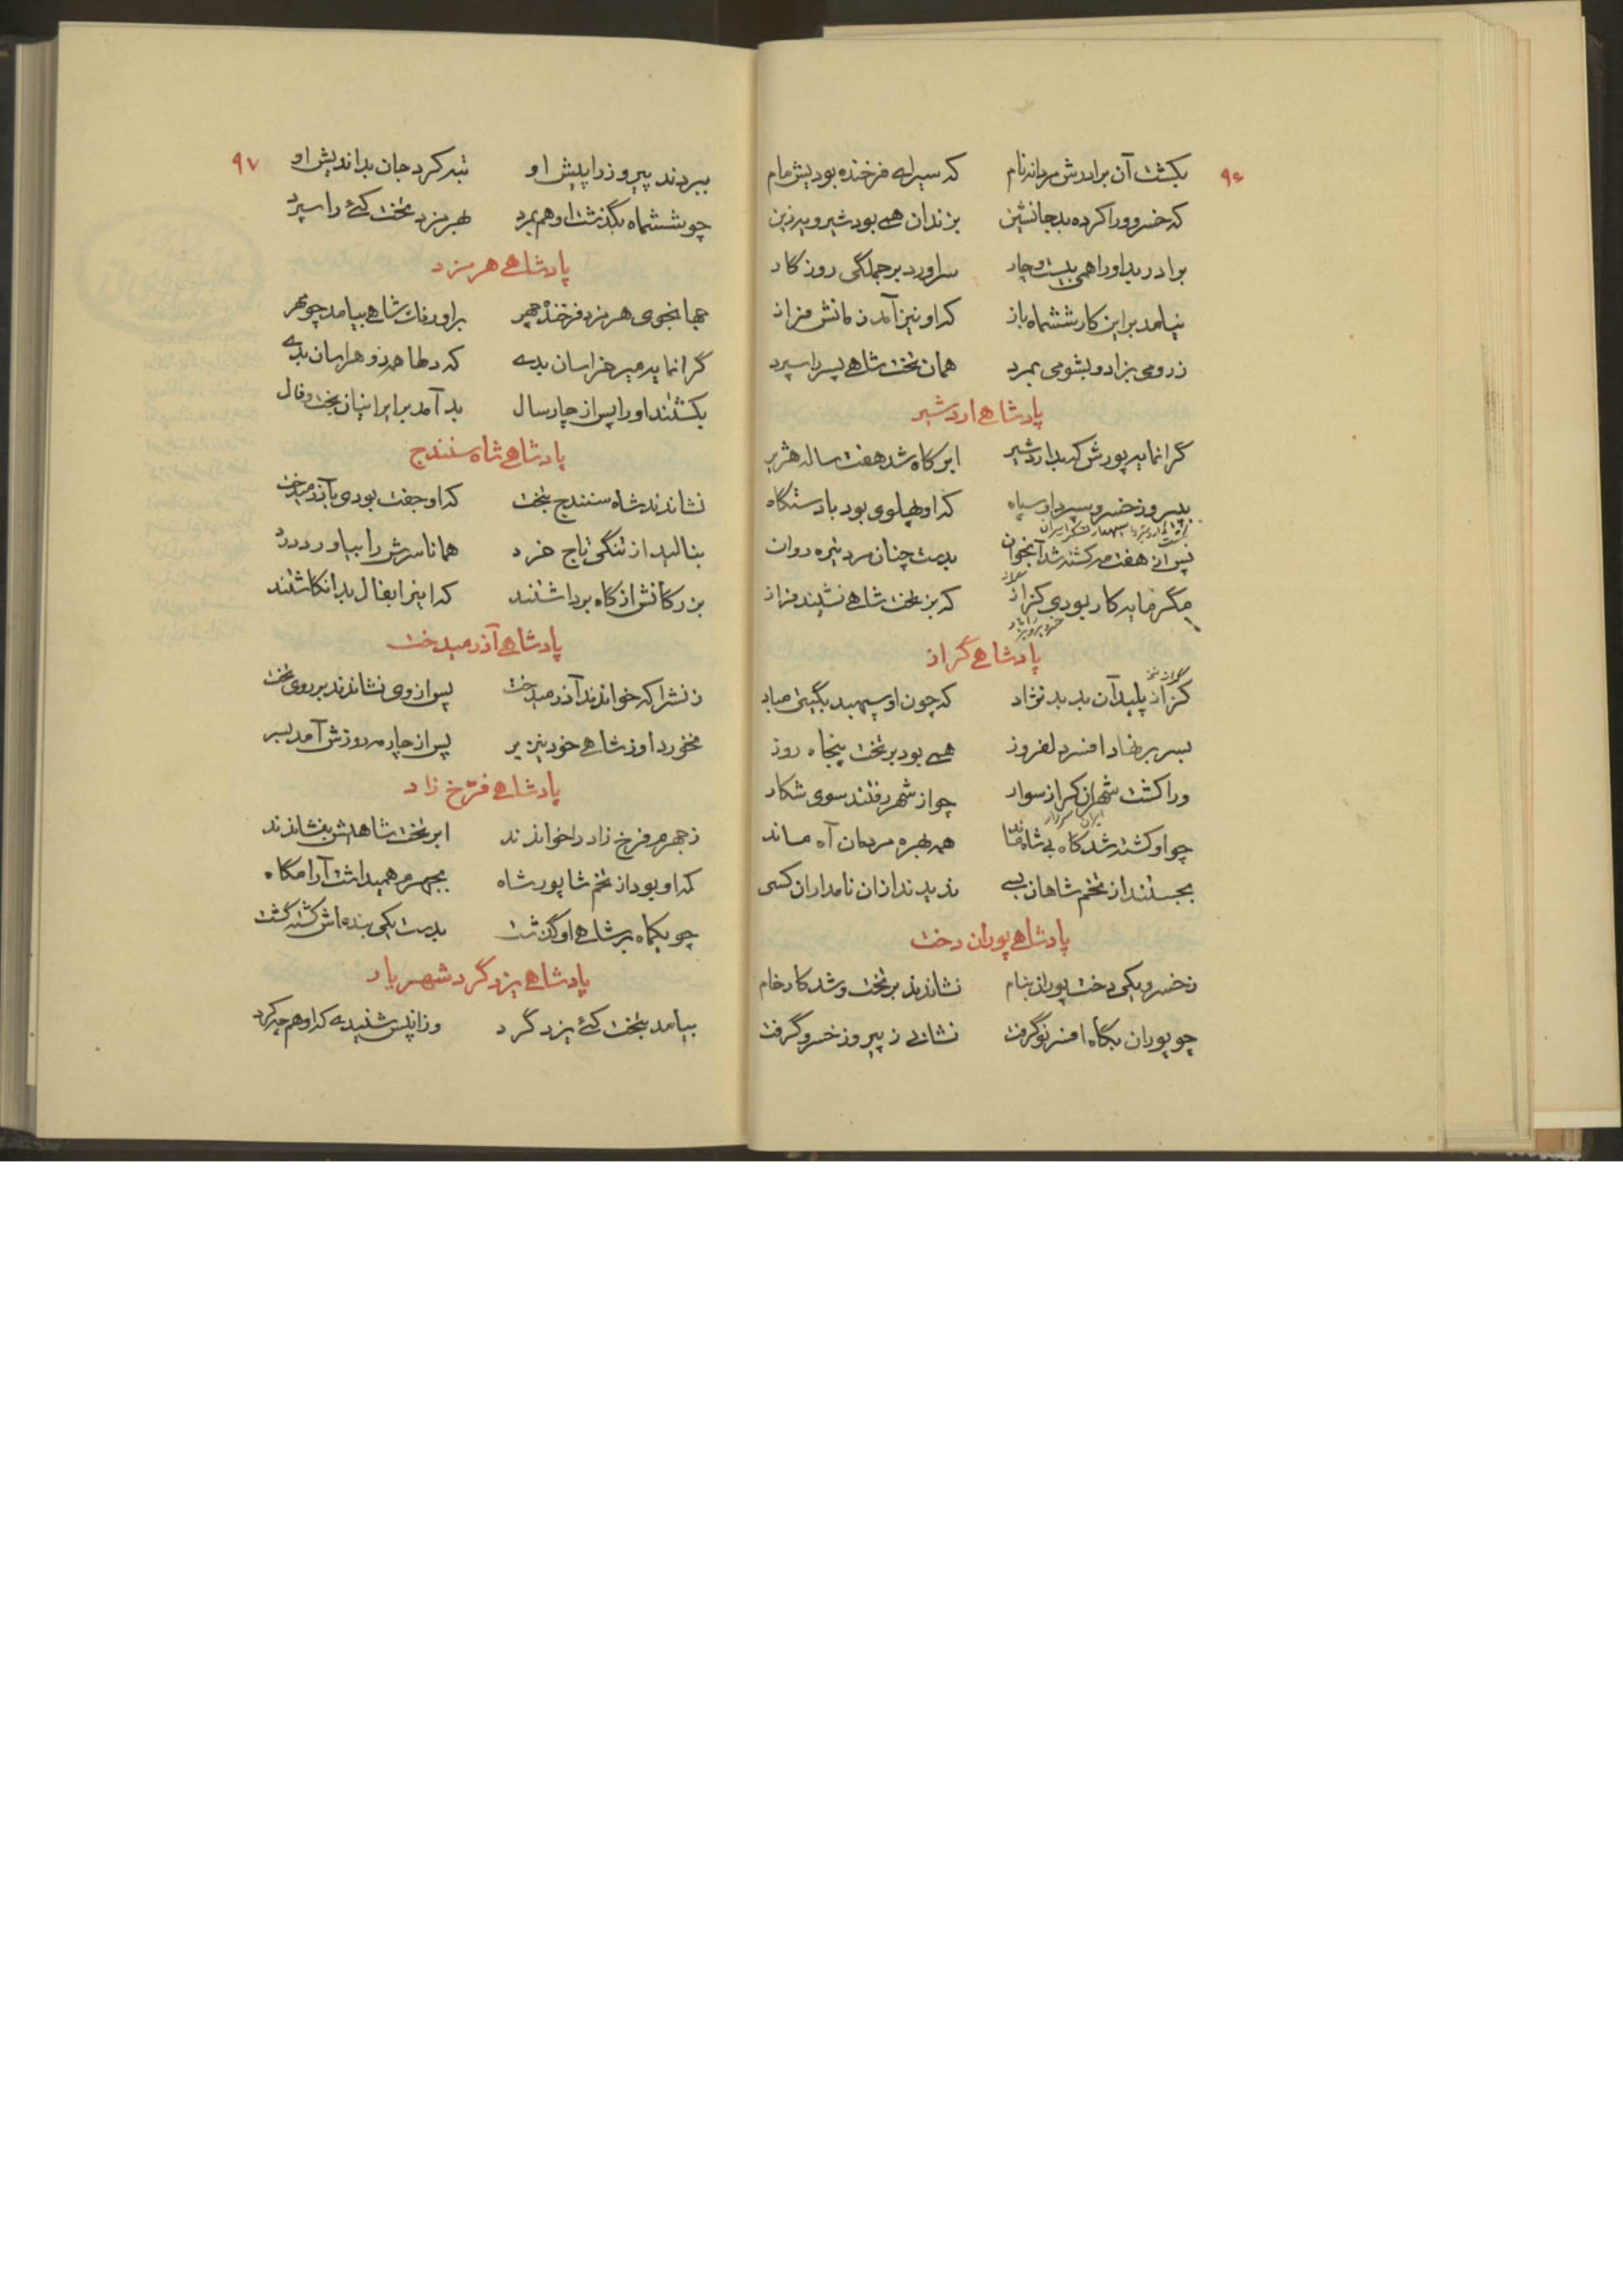 ۹۶
بکشت آن برادرش مردانه نام که سیرابه فرخنده بودیش مام
که خسرو ورا کرده بد جانشین بزندان همی بود شیرویه زین
برادر بد او را همی بیست و چار سراورد بر جملگی روزگار
نیامد بر این کار ششماه باز که او نیز آمد زمانش فراز
ز رومی بزاد و بشومی بمرد همان تخت شاهی پسر را سپرد
پادشاهی اردشیر
گرانمایه پورش که بد اردشیر ابر گاه شد هفت ساله هژیر
به پیروز خسرو سپرد او سپاه که او پهلوی بود با دستگاه
پس از هفت مه کشته شد آنجوان بدست چنان مرد تیره روان
مگر مایه کار بودی گراز که بر تخت شاهی نشیند فراز
پادشاهی گراز
گراز پلید آن بد بد نژاد که چون او سپهبد بگیتی مباد
بسر بر نهاد افسر دلفروز همی بود بر تخت پنجاه روز
ورا کشت شهران گراز سوار چو از شهر رفتند سوی شکار
ایران سردار
چو او کشته شد گاه بی شاه ماند همه بهره مردمان آه ماند
بجستند از تخم شاهان بسی ندیدند ازان نامداران کسی
پادشاهی پوران دخت
ز خسرو یکی دخت پوران بنام نشاندند بر تخت و شد کار خام
چو پوران بگاه افسر نو گرفت نشانی ز پیروز خسرو گرفت
۹۷
ببردند پیروز را پیش او تبه کرد جان بداندیش او
چو ششماه بگذشت او هم بمرد بهرمزد تخت کئی را سپرد
پادشاهی هرمزد
جهانجوی هرمزد فرخنده چهر براورنگ شاهی بیامد چو مهر
گرانمایه میر خراسان بدی که دلها همه زو هراسان بدی
بکشتند او را پس از چار سال بد آمد بر ایرانیان بخت و فال
پادشاهی شاه سنندج
نشاندند شاه سنندج بتخت که او جفت بودی بآذرمیدخت
بنالید از تنگی تاج خرد همانا سرش را بیاورد درد
بزرگانش از گاه برداشتند که اینرا بفال بد انگاشتند
پادشاهی آذرمیدخت
زنش را که خواندند آذرمیدخت پس از وی نشاندند بر روی تخت
نخورد او ز شاهی خود نیز بر پس از چار مه روزش آمد بسر
پادشاهی فرّخ زاد
ز جهرم فرخ زاد را خواندند ابر تخت شاهیش بنشاندند
که او بود از تخم شاپور شاه بجهرم همیداشت آرامگاه
چو یکماه بر شاهی او گذشت بدست یکی بنده اش کشته گشت
پادشاهی یزدگرد شهریار
بیامد بتخت کئی یزدگرد وزانپس شنیدی که او هم چه کرد